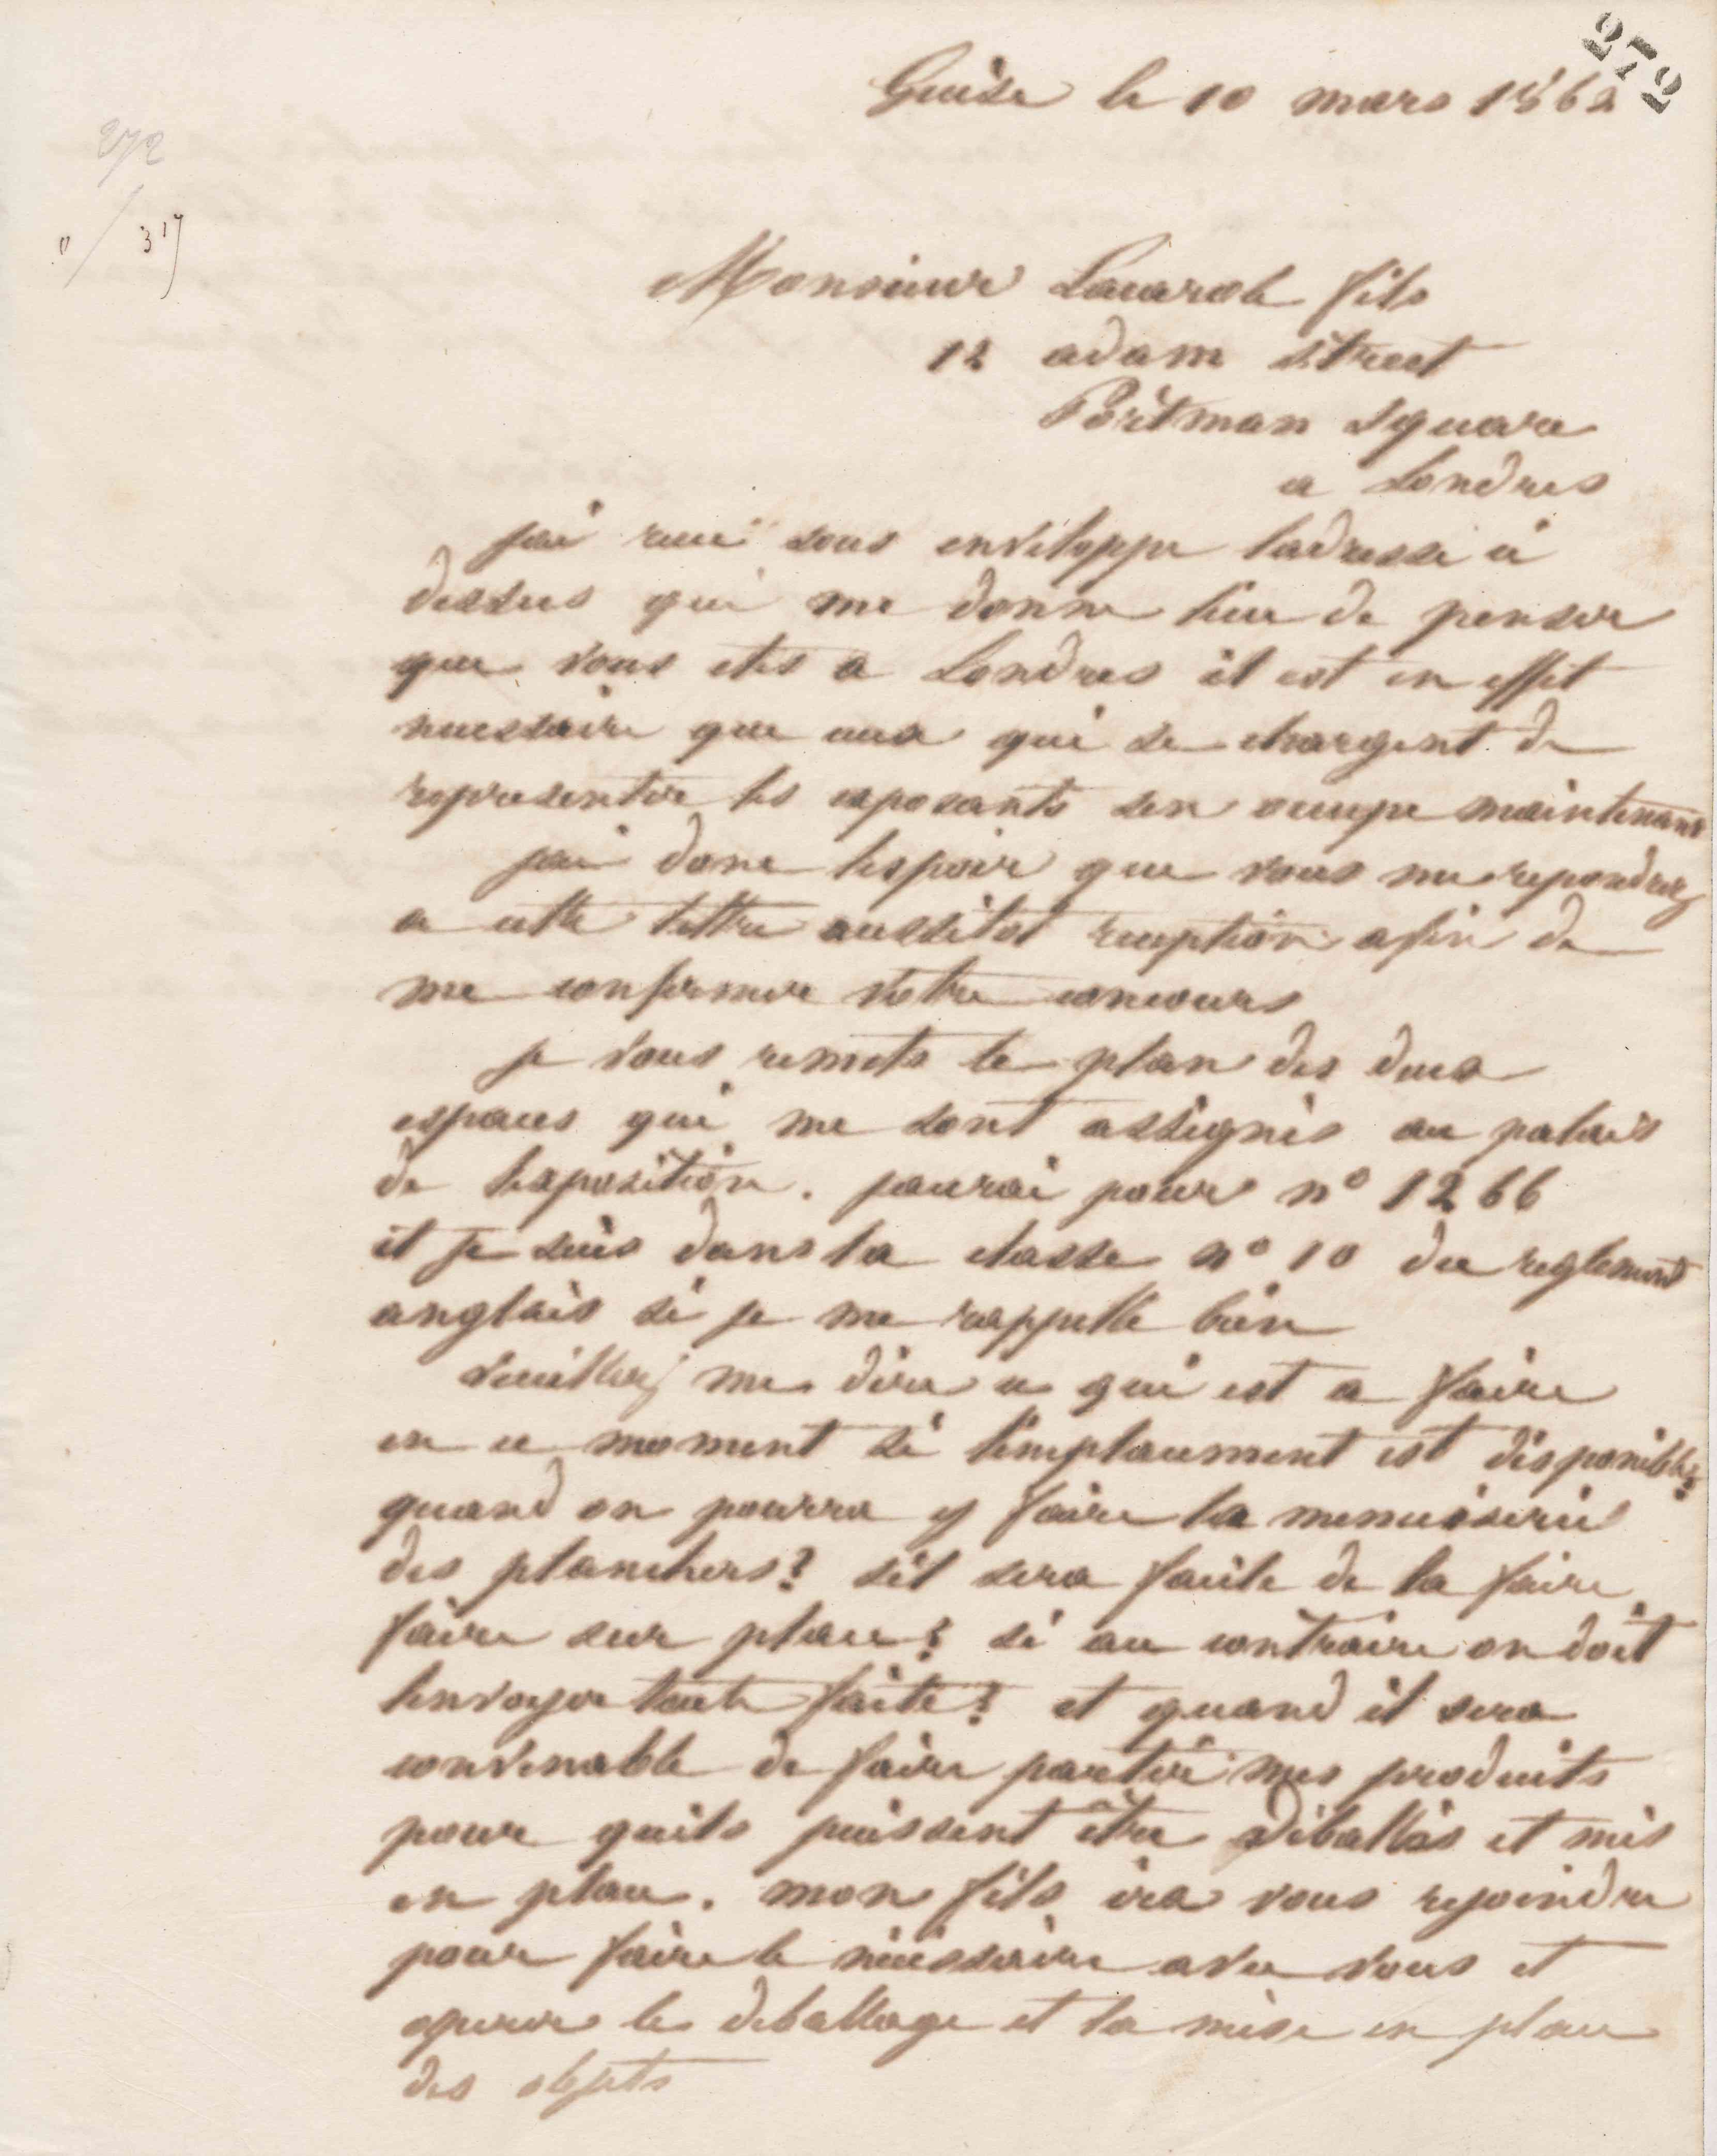 272
Guise le 10 mars 1862
272
317
Monsieur fils
12 adam street
Portman square
a Londres
jai recu sous enveloppe ladresse ci
dessus qui me donne lieu de penser
que vous etes a Londres il est en effet
necessaire que ceux qui se chargent de
representer les exposants sen occupe maintenant
jai donc lespoir que vous me repondrez
a cette lettre aussitot reception afin de
me confirmer votre concours
je vous remets le plan des deux
espaces qui me sont assignés au palais
de lexposition. jaurai pour n° 1266
et je suis dans la classe n° 10 du reglement
anglais si je me rappelle bien
Veuillez me dire ce qui est a faire
en ce moment si lemplacement est disponible?
quand on pourra y faire la menuiserie
des planchers? sil sera facile de la faire
faire sur place? si au contraire on doit
lenvoyer toute faite? et quand il sera
convenable de faire partir mes produits
pour quils puissent être déballés et mis
en place. mon fils ira vous rejoindre
pour faire le nécessaire avec vous et
operer le deballage et la mise en place
des objets